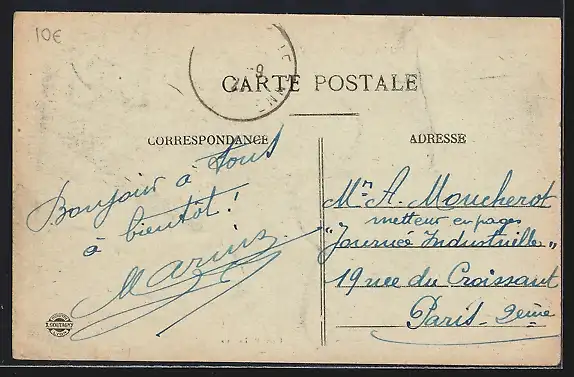 10€
CARTE POSTALE
CORRESPONDANCE
ADRESSE
Bonjour à tous
à bientôt!
Marius
Mr A. Moucherot
metteur en pages
"Journée Industrielle"
19 rue du Croissant
Paris-2eme